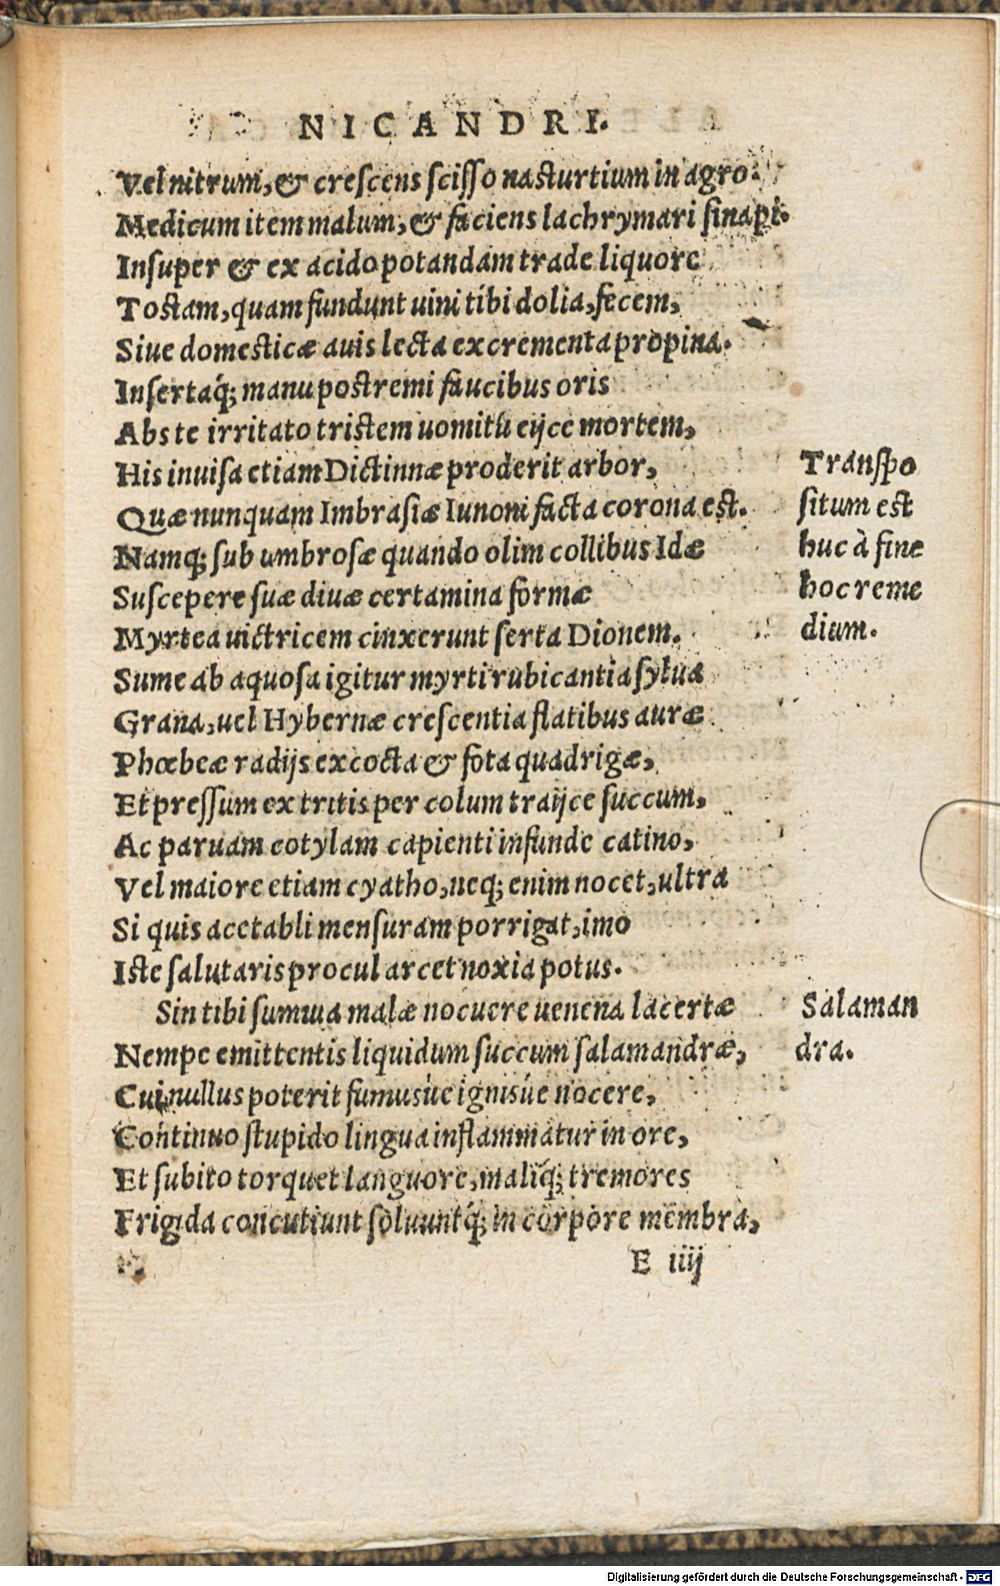 NICANDRI.
Vel nitrum, & crescens scisso nasturtium in agro.
Medicum item malum, & faciens lachrymari sinapi.
Insuper & ex acido potandam trade liquore
Tostam, quam fundunt uini tibi dolia, fecem,
Siue domesticæ auis lecta excrementa propina.
Insertaq́; manu postremi faucibus oris
Abs te irritato tristem uomitu eijce mortem,
His inuisa etiam Dictinnæ proderit arbor,
Quæ nunquam Imbrasiæ Iunoni facta corona est.
Namq; sub umbrosæ quando olim collibus Idæ
Suscepere suæ diuæ certamina formæ
Myrtea uictricem cinxerunt serta Dionem.
Transpo
situm est
huc à fine
hoc reme
dium.
Sume ab aquosa igitur myrti rubicantia sylua
Grana, uel Hybernæ crescentia flatibus auræ
Phœbeæ radijs excocta & fota quadrigæ,
Et pressum ex tritis per colum traijce succum,
Ac paruam cotylam capienti infunde catino,
Vel maiore etiam cyatho, neq; enim nocet, ultra
Si quis acetabli mensuram porrigat, imo
Iste salutaris procul arcet noxia potus.
Sin tibi summa malæ nocuere uenena lacertæ
Nempe emittentis liquidum succum salamandræ,
Salaman
dra.
Cui nullus poterit fumusúe ignisúe nocere,
Continuo stupido lingua inflammatur in ore,
Et subito torquet languore, maliq́; tremores
Frigida concutiunt soluuntq́; in corpore membra,
E iiij
Digitalisierung gefördert durch die Deutsche Forschungsgemeinschaft - DFG